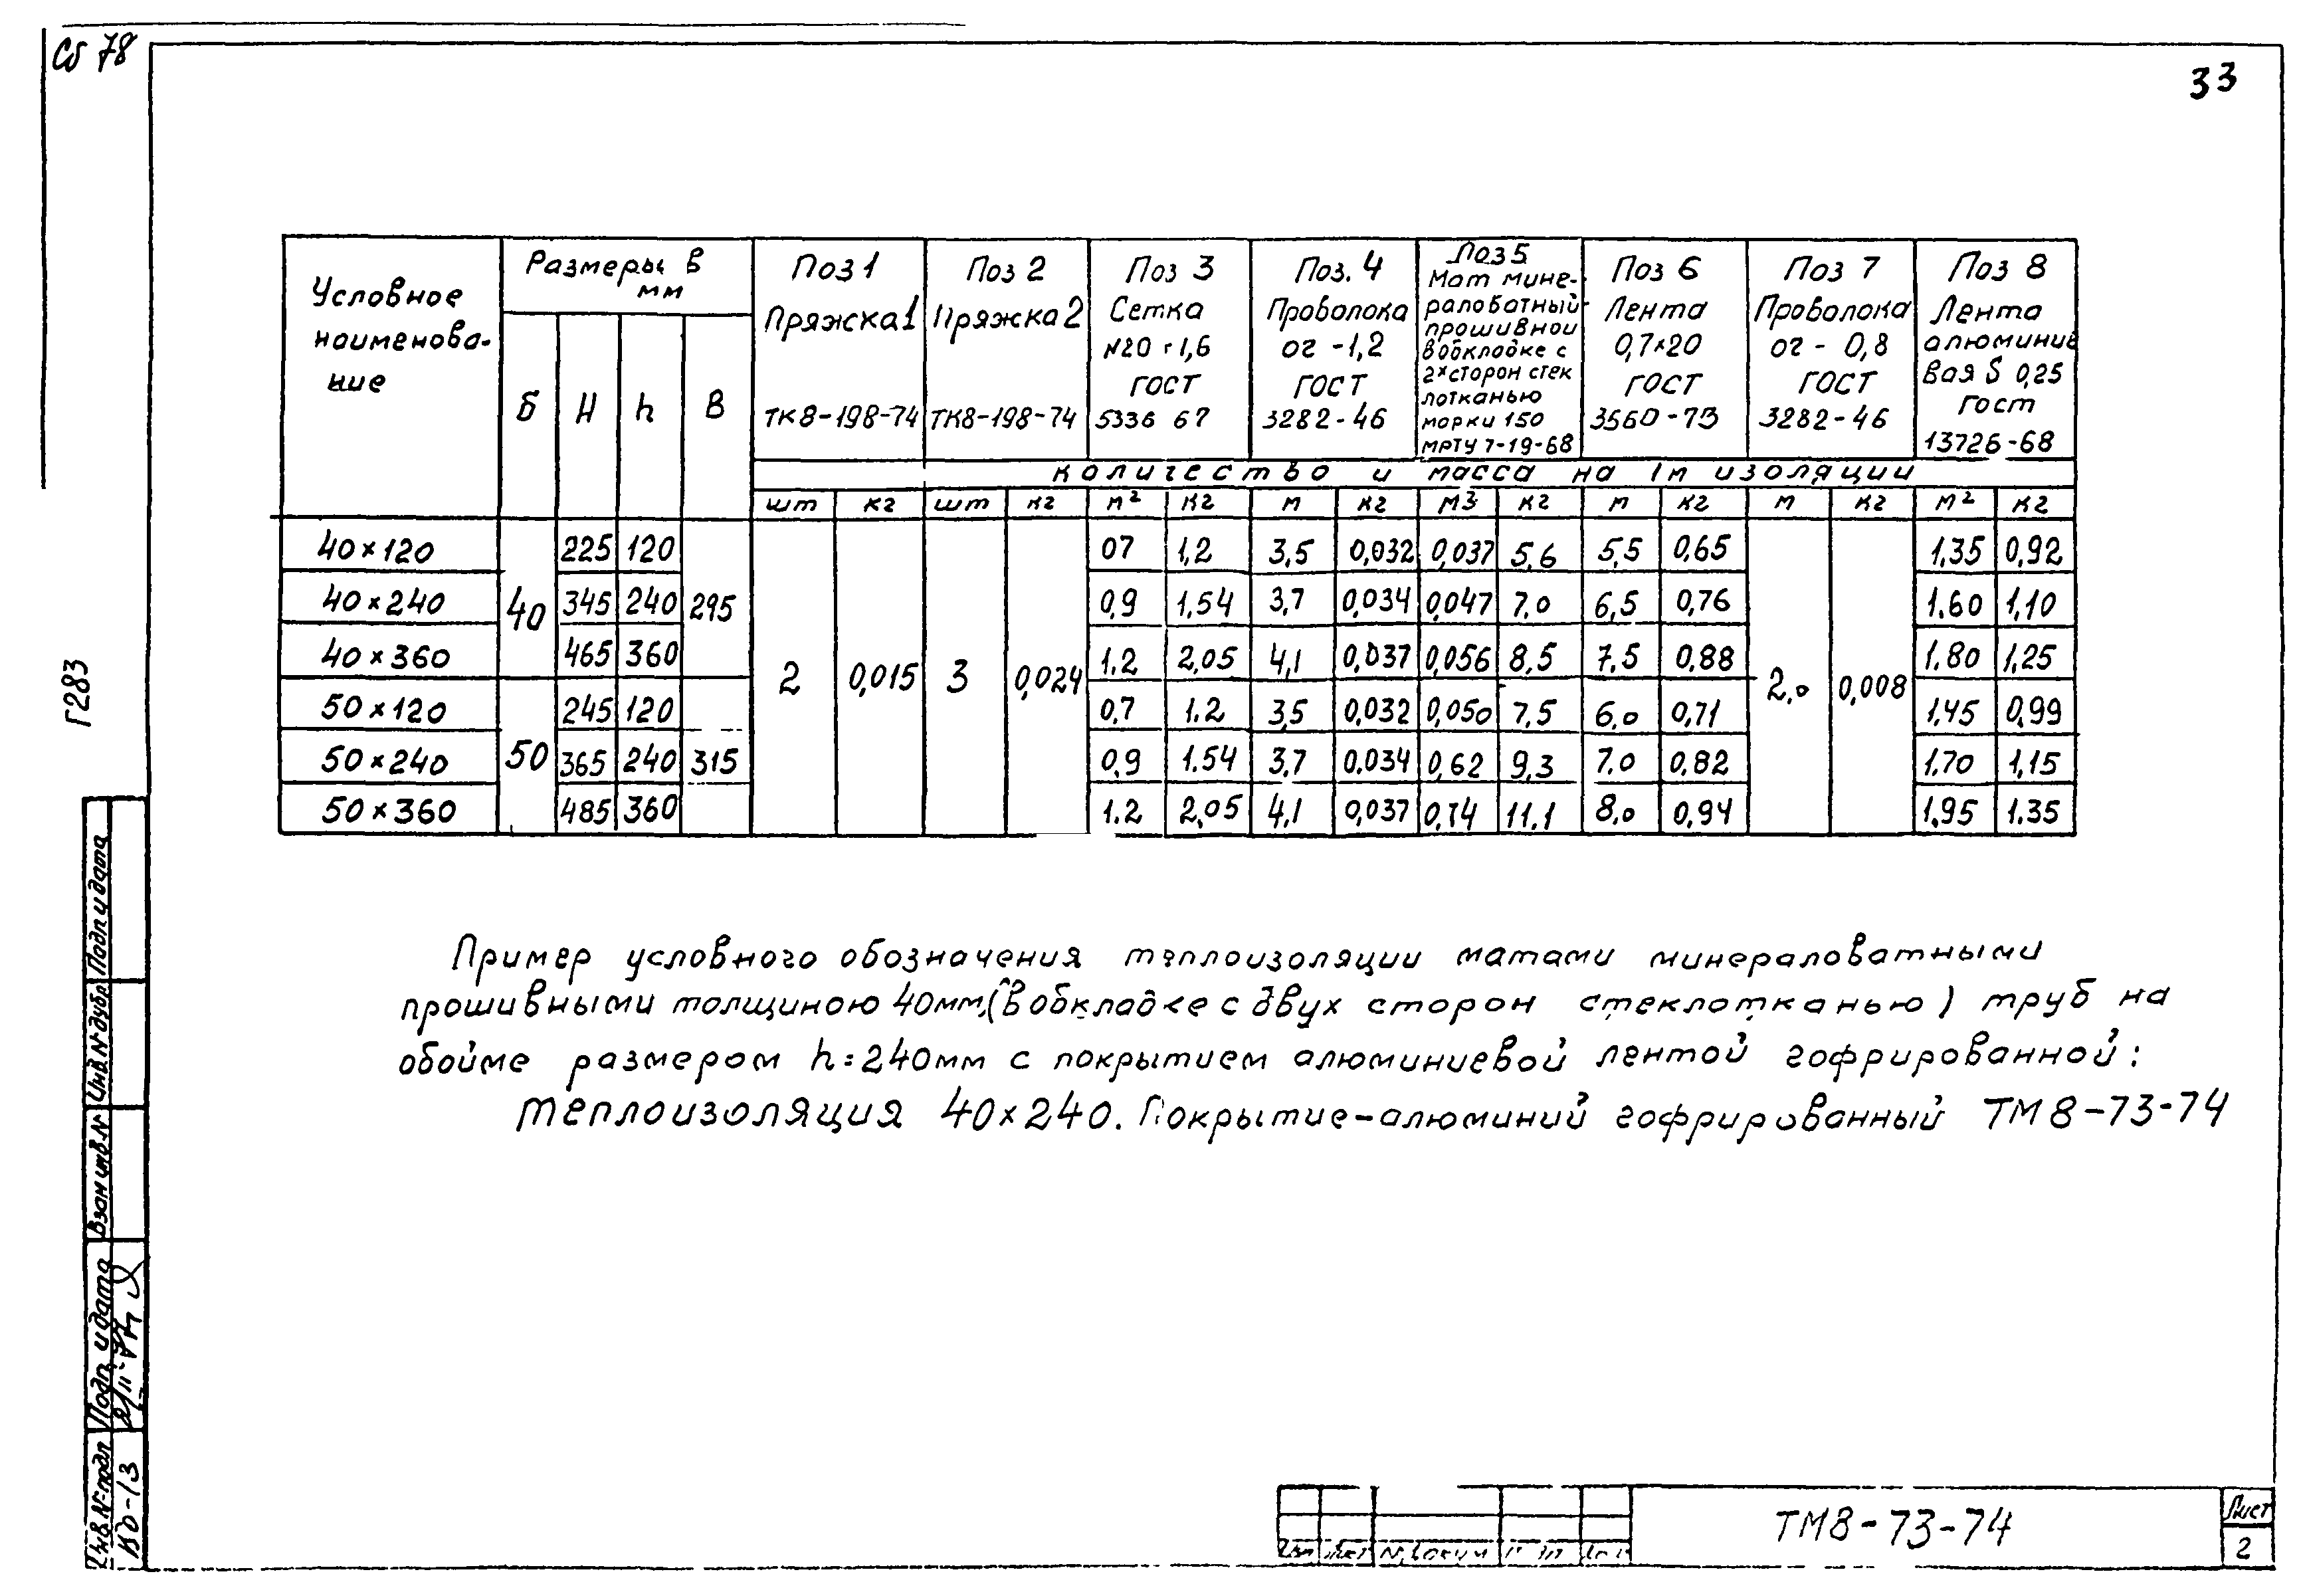 Сб 78
33
Условное наименова-ние | Размеры в мм | Поз 1 Пряжска 1 ТК8-198-74 | Поз 2 Пряжка 2 ТК8-198-74 | Поз 3 Сетка N20-1,6 ГОСТ 5336 67 | Поз. 4 Проволока ог -1,2 ГОСТ 3282-46 | Поз 5 Мат мине-раловатный прошивной в обкладке с 2х сторон стек лотканью марки 150 МРТУ 7-19-68 | Поз 6 Лента 0,7×20 ГОСТ 3560-73 | Поз 7 Проволока ог - 0,8 ГОСТ 3282-46 | Поз 8 Лента алюминие вая S 0,25 гост 13726-68
б | H | h | B
количество и масса на 1м изоляции
шт | кг | шт | кг | м² | кг | м | кг | м3 | кг | м | кг | м | кг | м² | кг
40×120 | 40 | 225 | 120 | 295 | 2 | 0,015 | 3 | 0,024 | 07 | 1,2 | 3,5 | 0,032 | 0,037 | 5,6 | 5,5 | 0,65 | 2,0 | 0,008 | 1,35 | 0,92
40×240 | 345 | 240 | 0,9 | 1.54 | 3,7 | 0,034 | 0,047 | 7.0 | 6,5 | 0,76 | 1.60 | 1,10
40×360 | 465 | 360 | 1.2 | 2,05 | 4,1 | 0,037 | 0,056 | 8,5 | 7,5 | 0,88 | 1.80 | 1,25
50×120 | 50 | 245 | 120 | 315 | 0.7 | 1.2 | 3,5 | 0,032 | 0,050 | 7,5 | 6.0 | 0,71 | 1,45 | 0,99
50×240 | 365 | 240 | 0,9 | 1.54 | 3,7 | 0.034 | 0,62 | 9,3 | 7.0 | 0,82 | 1.70 | 1,15
50×360 | 485 | 360 | 1.2 | 2,05 | 4,1 | 0,037 | 0,74 | 11.1 | 8.0 | 0,94 | 1.95 | 1.35
Пример условного обозначения теплоизоляции матами минераловатными
прошивными толщиною 40мм,(в обкладке с двух сторон стеклотканью) труб на
обойме размером h=240мм с покрытием алюминиевой лентой гофрированной:
теплоизоляция 40×240. Покрытие-алюминий гофрированный ТМ8-73-74
Г283
Подп и дата
Инв N дубр
Взам инв N
Подп. и дата
Инв. N подл
КО-13
ТМ8-73-74
Лист
2